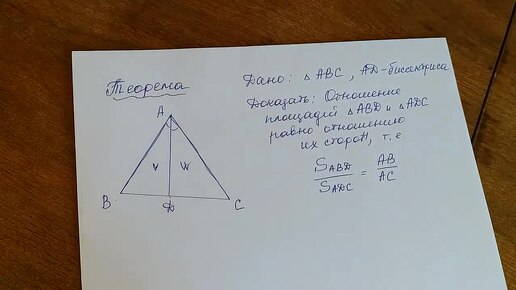 Теорема
Дано: △ABC, AD-биссектриса
Доказать: Отношение
площадей △ABD и △ADC
равно отношению
их сторон, т.е.
S_ABD / S_ADC = AB / AC
A
B
D
C